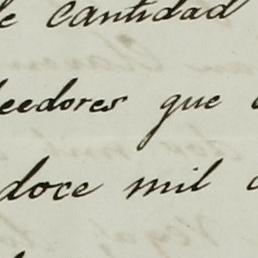 de cantidad
eedores que
doce mil